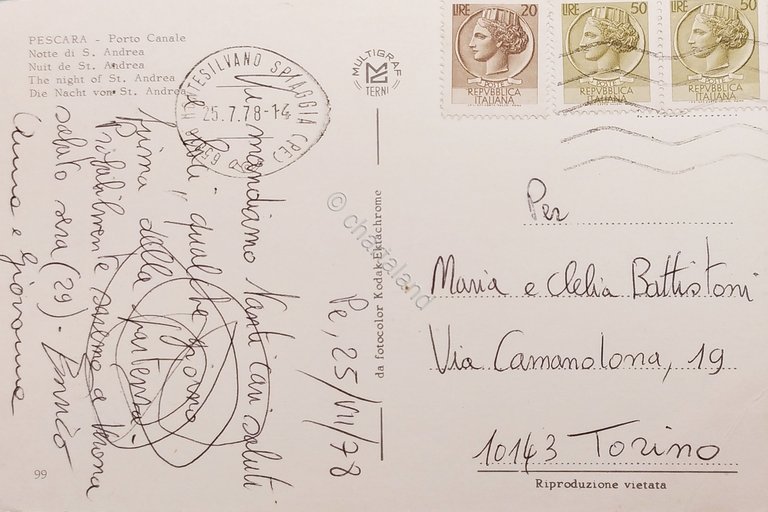 PESCARA - Porto Canale
Notte di S. Andrea
Nuit de St. Andrea
The night of St. Andrea
Die Nacht von St. Andrea
MONTESILVANO SPIAGGIA (PE)
25.7.78-14
MULTIGRAF
TERNI
LIRE 20
REPVBBLICA
ITALIANA
LIRE 50
REPVBBLICA
ITALIANA
LIRE 50
REPVBBLICA
ITALIANA
Pe, 25/VII/78
Vi mandiamo tanti cari saluti
qualche giorno
prima della partenza.
Probabilmente saremo a
sabato sera (29). Enrico
Anna e Giovanna
da fotocolor Kodak Ektachrome
© chartaland
Per
Maria e Clelia Battistoni
Via Camandona, 19
10143 Torino
Riproduzione vietata
99